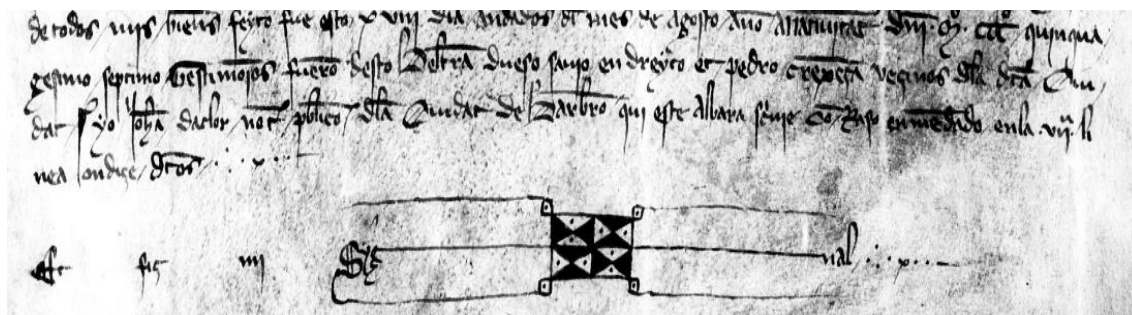 de todos mis bienes feyto fue esto xviii dia andados dl mes de agosto año anatiuitate dni mº ccc quinqua
gesimo septimo Testimonios fuero desto Beltra dueso sauio en dreyto et pedro vezinos dla dca Ciu
dat yo Joha daclor not publico dla Ciudat de Barbro qui este albara scriuie Co Raso enmedado en la vii li
nea on dize dcos
est sig mi Sig nal